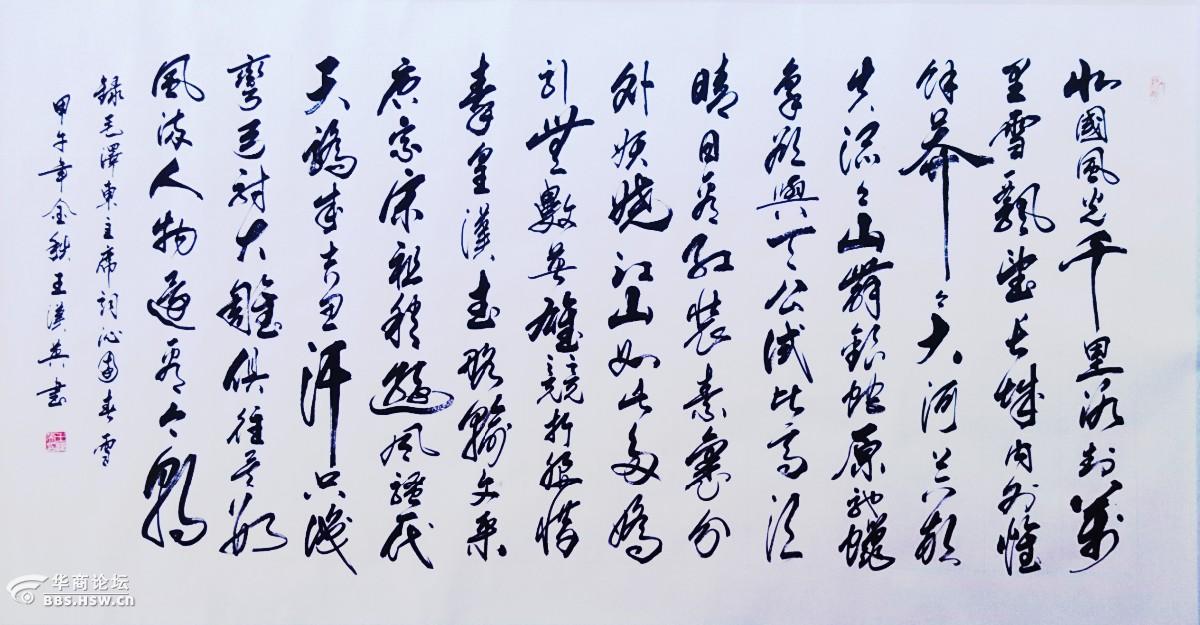 北國風光千里冰封萬
里雪飄望長城內外惟
餘莽々大河上下頓
失滔々山舞銀蛇原馳蠟
象欲與天公試比高須
晴日看紅裝素裹分
外妖嬈江山如此多嬌
引無數英雄競折腰惜
秦皇漢武略輸文采
唐宗宋祖稍遜風騷一代
天驕成吉思汗只識
彎弓射大雕俱往矣數
風流人物還看今朝
錄毛澤東主席詞沁園春雪
甲午年金秋王漢英書
华商论坛
BBS.HSW.CN